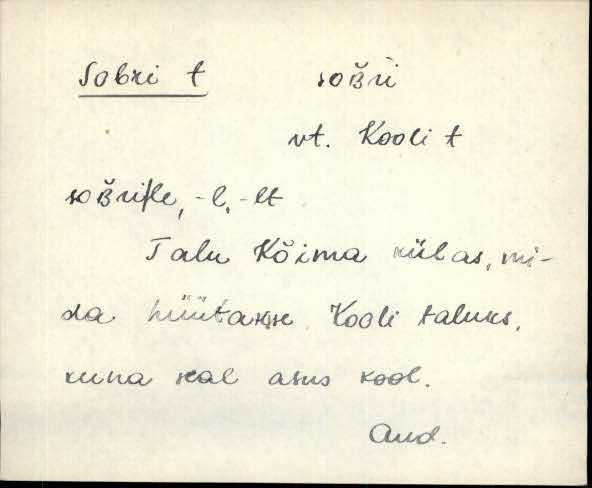 Sobri t soB̆ri
vt. Kooli t
soB̆ri|le, -l, -lt
Talu Kõima külas, mi-
da hüütakse Kooli taluks,
kuna seal asus kool.
And.